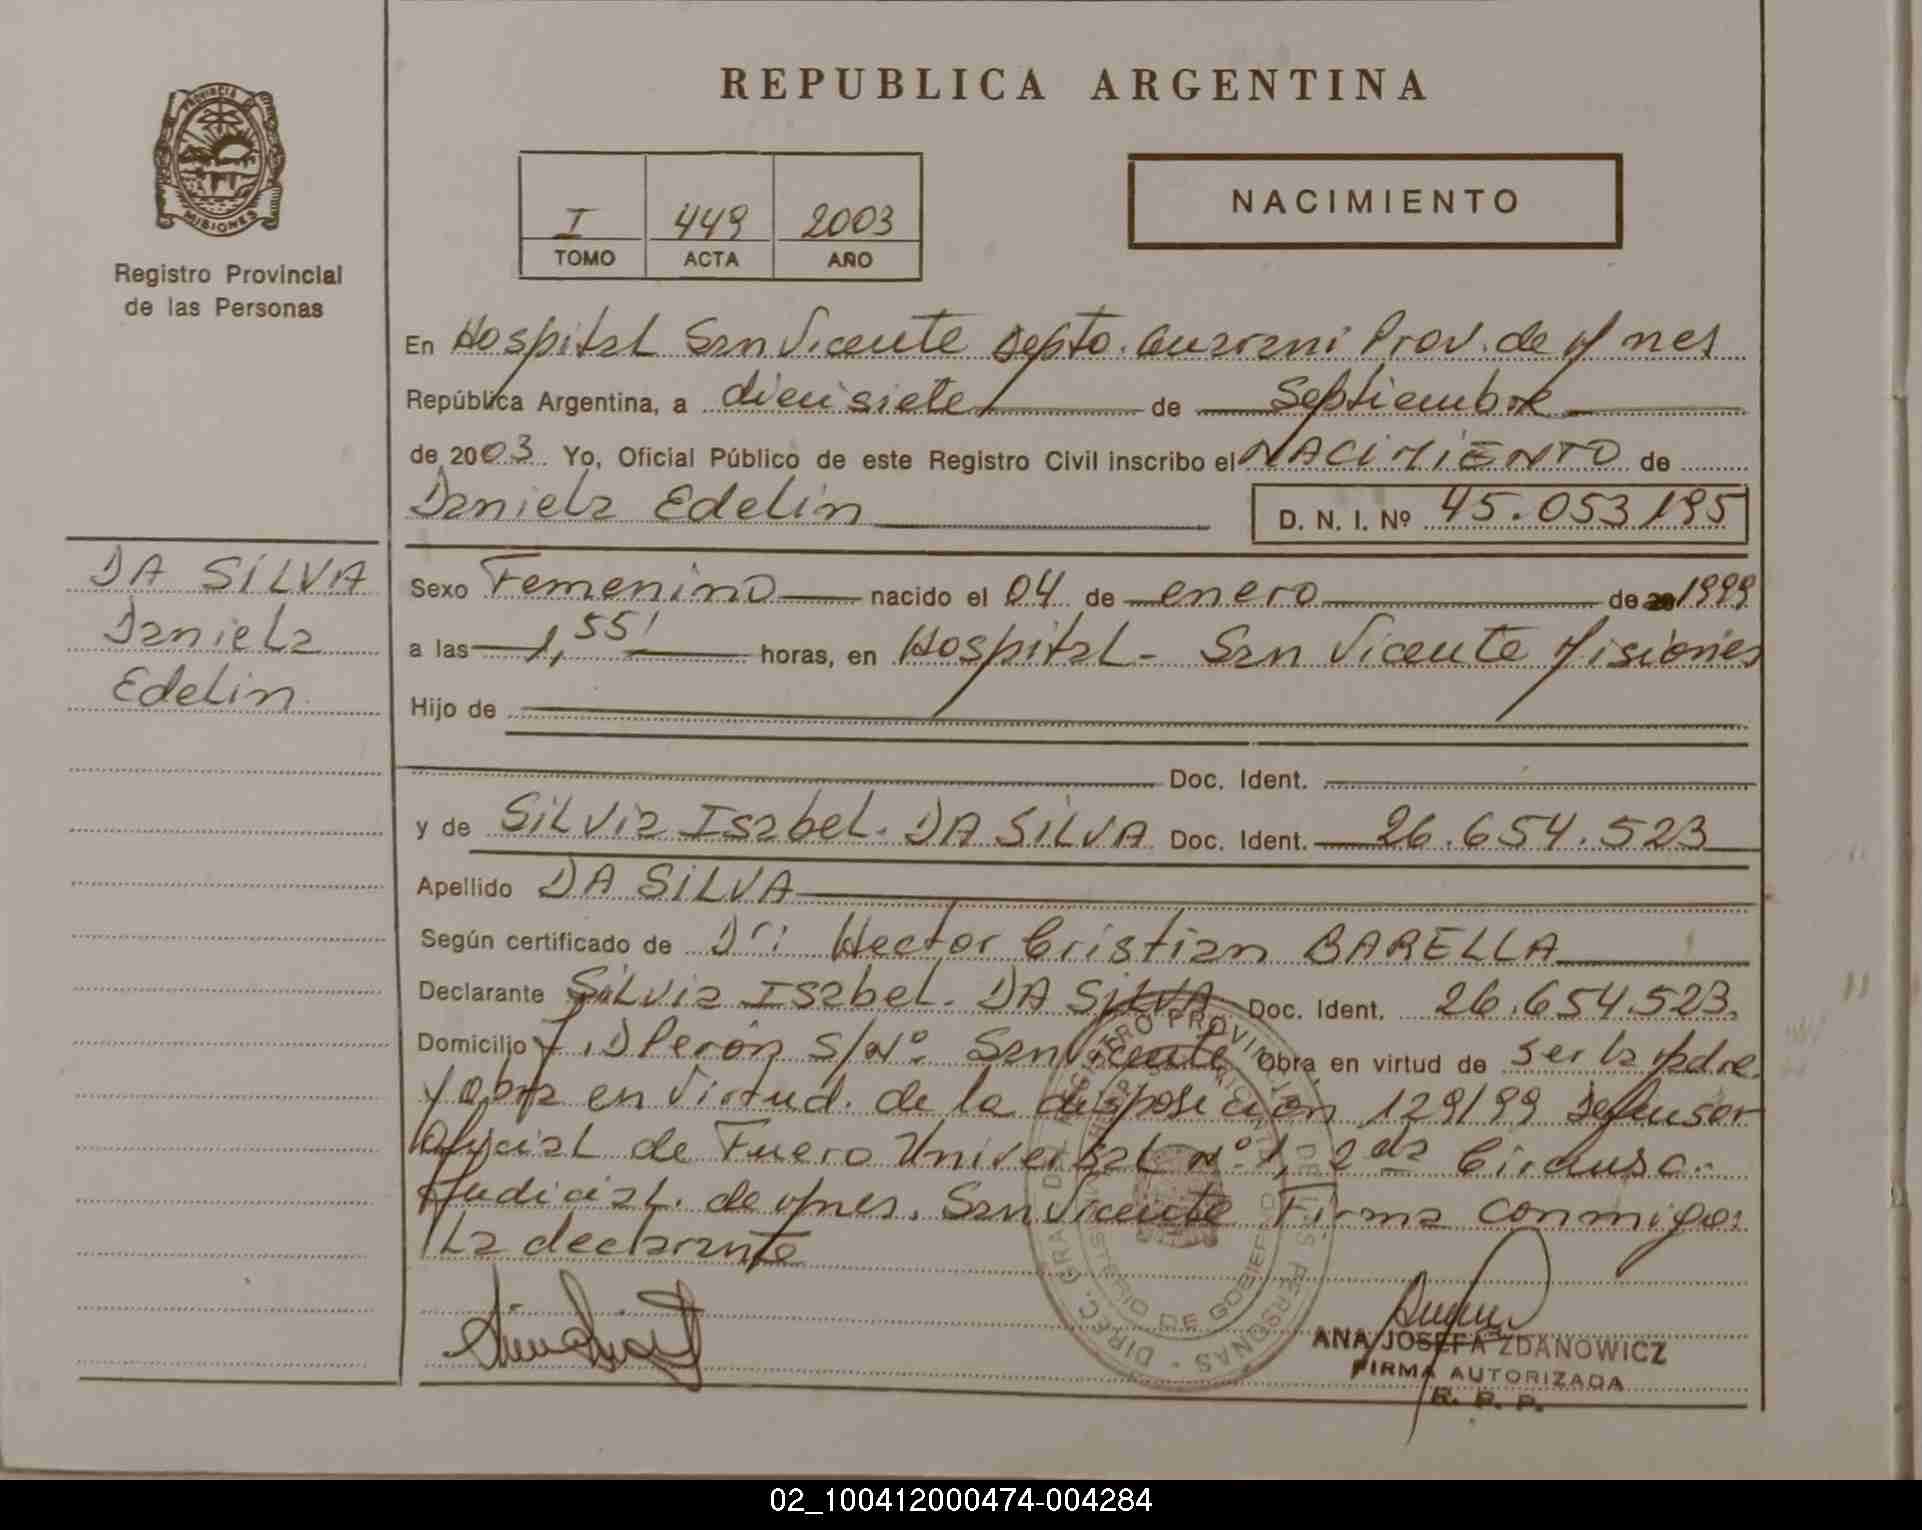 REPUBLICA ARGENTINA
PROVINCIA DE
MISIONES
Registro Provincial
de las Personas
I 449 2003
TOMO ACTA AÑO
NACIMIENTO
En Hospital San Vicente Depto. Guarani Prov. de Mnes
República Argentina, a diecisiete de Septiembre
de 2003 Yo, Oficial Público de este Registro Civil inscribo el NACIMIENTO de
Daniela Edelin D. N. I. Nº 45.053.195
DA SILVA
Daniela
Edelin
Sexo Femenino nacido el 04 de enero de 1999
a las 1,55' horas, en Hospital - San Vicente Misiones
Hijo de
Doc. Ident.
y de Silvia Isabel. DA SILVA Doc. Ident. 26.654.523
Apellido DA SILVA
Según certificado de Dr: Hector Cristian BARELLA
Declarante Silvia Isabel. DA SILVA Doc. Ident. 26.654.523.
Domicilio J.D Perón S/Nº San Vicente Obra en virtud de ser la Madre.
y obra en virtud. de la disposición 129/99 Defensor
Oficial de Fuero Universal Nº 1, 2da Circunsc.
Judicial. de Mnes. San Vicente Firma conmigo:
la declarante
DIREC. GRAL. DEL REGISTRO PROVINCIAL DE LAS PERSONAS
MINISTERIO DE GOBIERNO
ANA JOSEFA ZDANOWICZ
FIRMA AUTORIZADA
R. P. P.
02_100412000474-004284